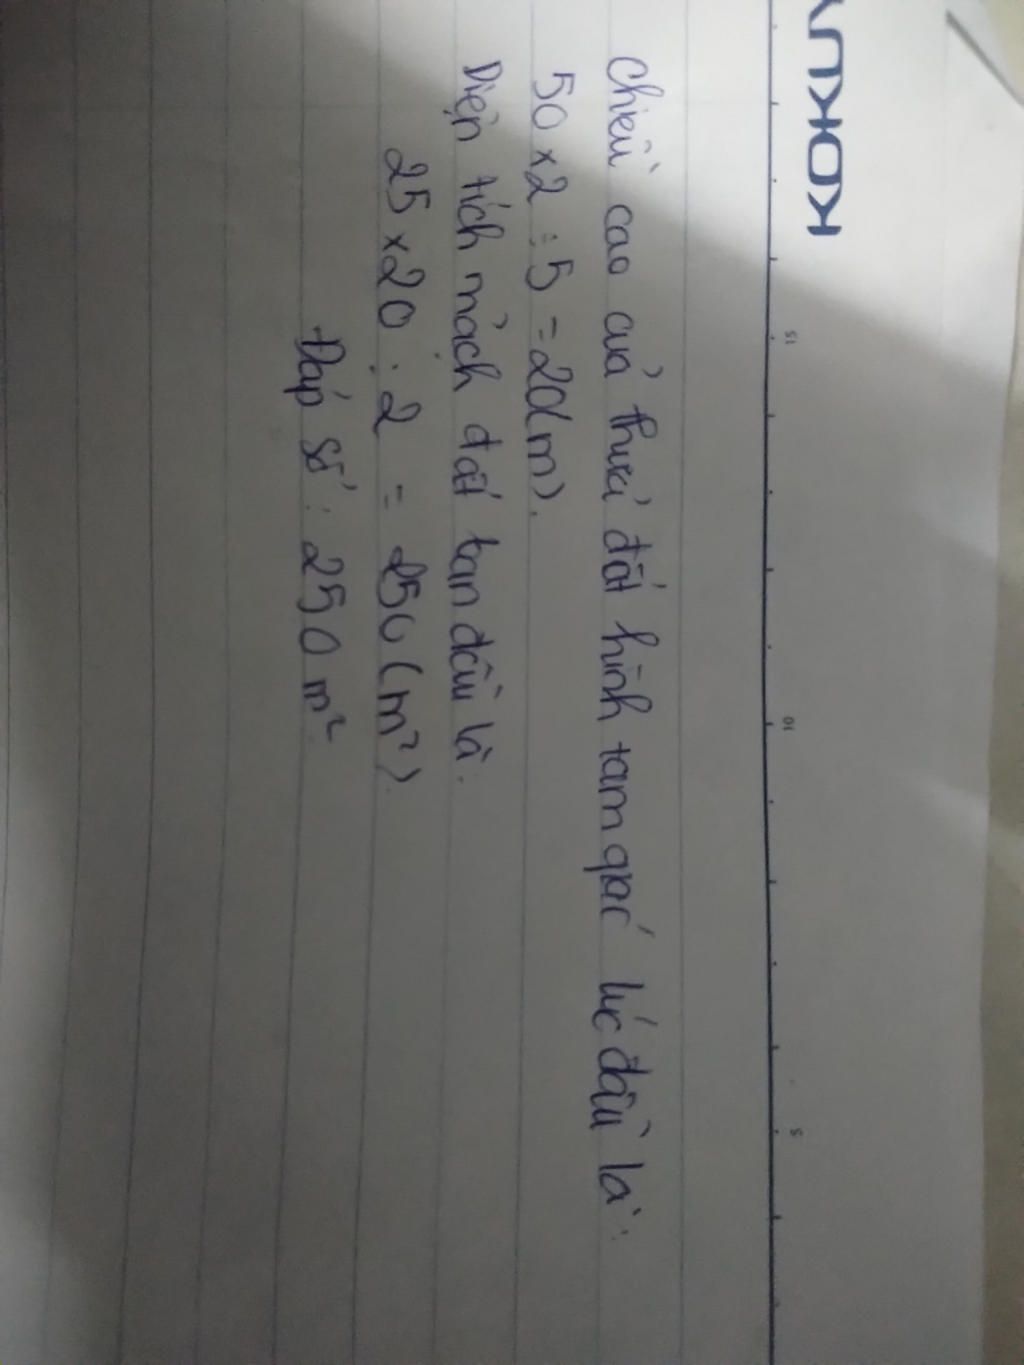 KOKUY
15
10
5
Chiều cao cuả thửa đất hình tam giác lúc đầu là:
50 × 2 : 5 = 20(m).
Diện tích mảch đất ban đầu là:
25 × 20 : 2 = 250 (m²).
Đáp số: 250 m²